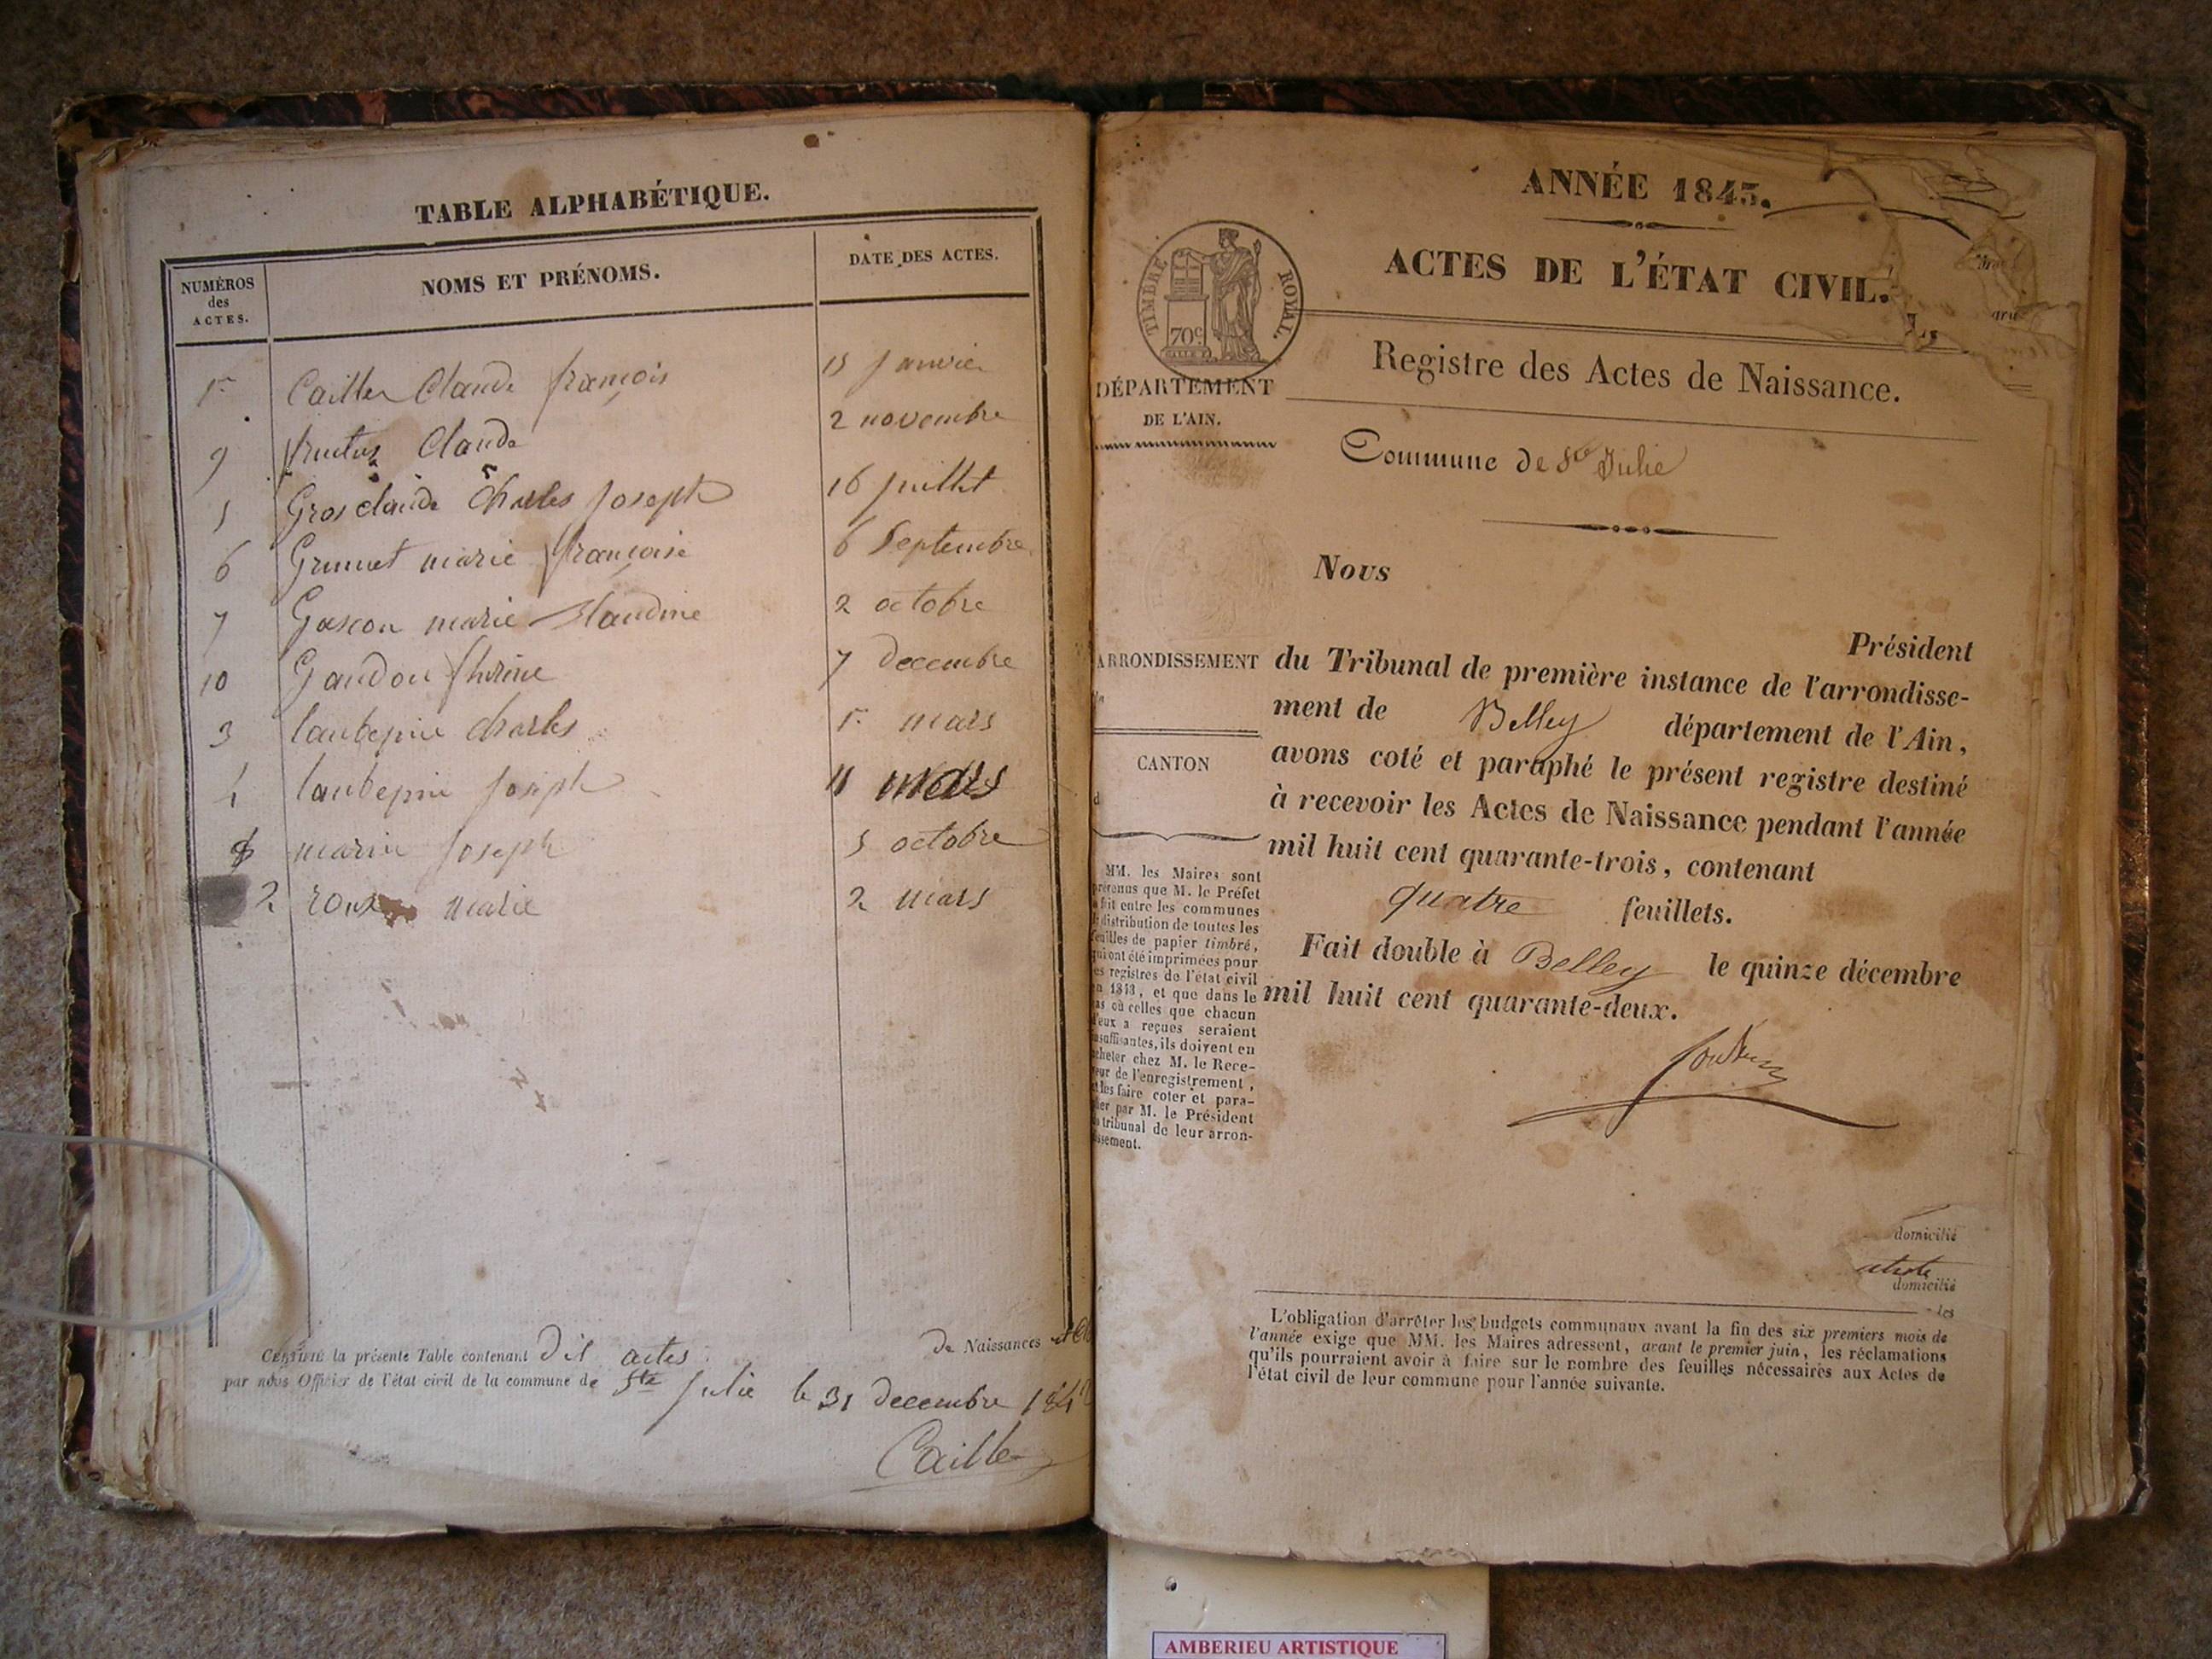 TABLE ALPHABÉTIQUE.
NUMÉROS
des
ACTES.
NOMS ET PRÉNOMS.
DATE DES ACTES.
1er Cailler Claude françois 15 Janvier
9 fructus Claude 2 novembre
5 Gros claude Charles Joseph 16 Juillet
6 Grumet marie françoise 6 Septembre
7 Gascon marie Claudine 2 octobre
10 Gaudon 7 decembre
3 laubepin Charles 1er mars
4 laubepin Joseph 11 mars
8 marin Joseph 5 octobre
2 roux marie 2 mars
CERTIFIÉ la présente Table contenant Dix actes de Naissances
par nous Officier de l'état civil de la commune de Ste Julie le 31 decembre 184
Cailler
ANNÉE 1843.
ACTES DE L'ÉTAT CIVIL.
TIMBRE ROYAL.
70c
Registre des Actes de Naissance.
DÉPARTEMENT
DE L'AIN.
Commune de Ste Julie
Nous
Président
ARRONDISSEMENT
du Tribunal de première instance de l'arrondisse-
ment de Belley département de l'Ain,
CANTON
avons coté et paraphé le présent registre destiné
à recevoir les Actes de Naissance pendant l'année
mil huit cent quarante-trois, contenant
quatre feuillets.
Fait double à Belley le quinze décembre
mil huit cent quarante-deux.
MM. les Maires sont
prévenus que M. le Préfet
a fait entre les communes
la distribution de toutes les
feuilles de papier timbré,
qui ont été imprimées pour
les registres de l'état civil
en 1843, et que dans le
cas où celles que chacun
d'eux a reçues seraient
insuffisantes, ils doivent en
acheter chez M. le Rece-
veur de l'enregistrement,
et les faire coter et para-
pher par M. le Président
du tribunal de leur arron-
dissement.
domicilié
domicilié
les
L'obligation d'arrêter les budgets communaux avant la fin des six premiers mois de
l'année exige que MM. les Maires adressent, avant le premier juin, les réclamations
qu'ils pourraient avoir à faire sur le nombre des feuilles nécessaires aux Actes de
l'état civil de leur commune pour l'année suivante.
AMBERIEU ARTISTIQUE